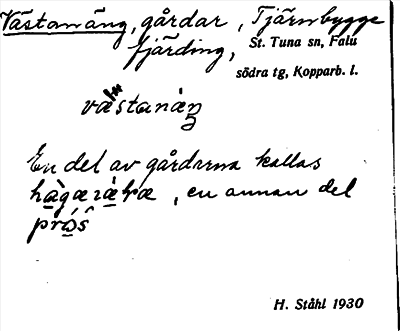 Västanäng, gårdar, Tjärnbygge
fjärding, St. Tuna sn, Falu
södra tg, Kopparb. l.
västanäŋ
En del av gårdarna kallas
, en annan del
H. Ståhl 1930